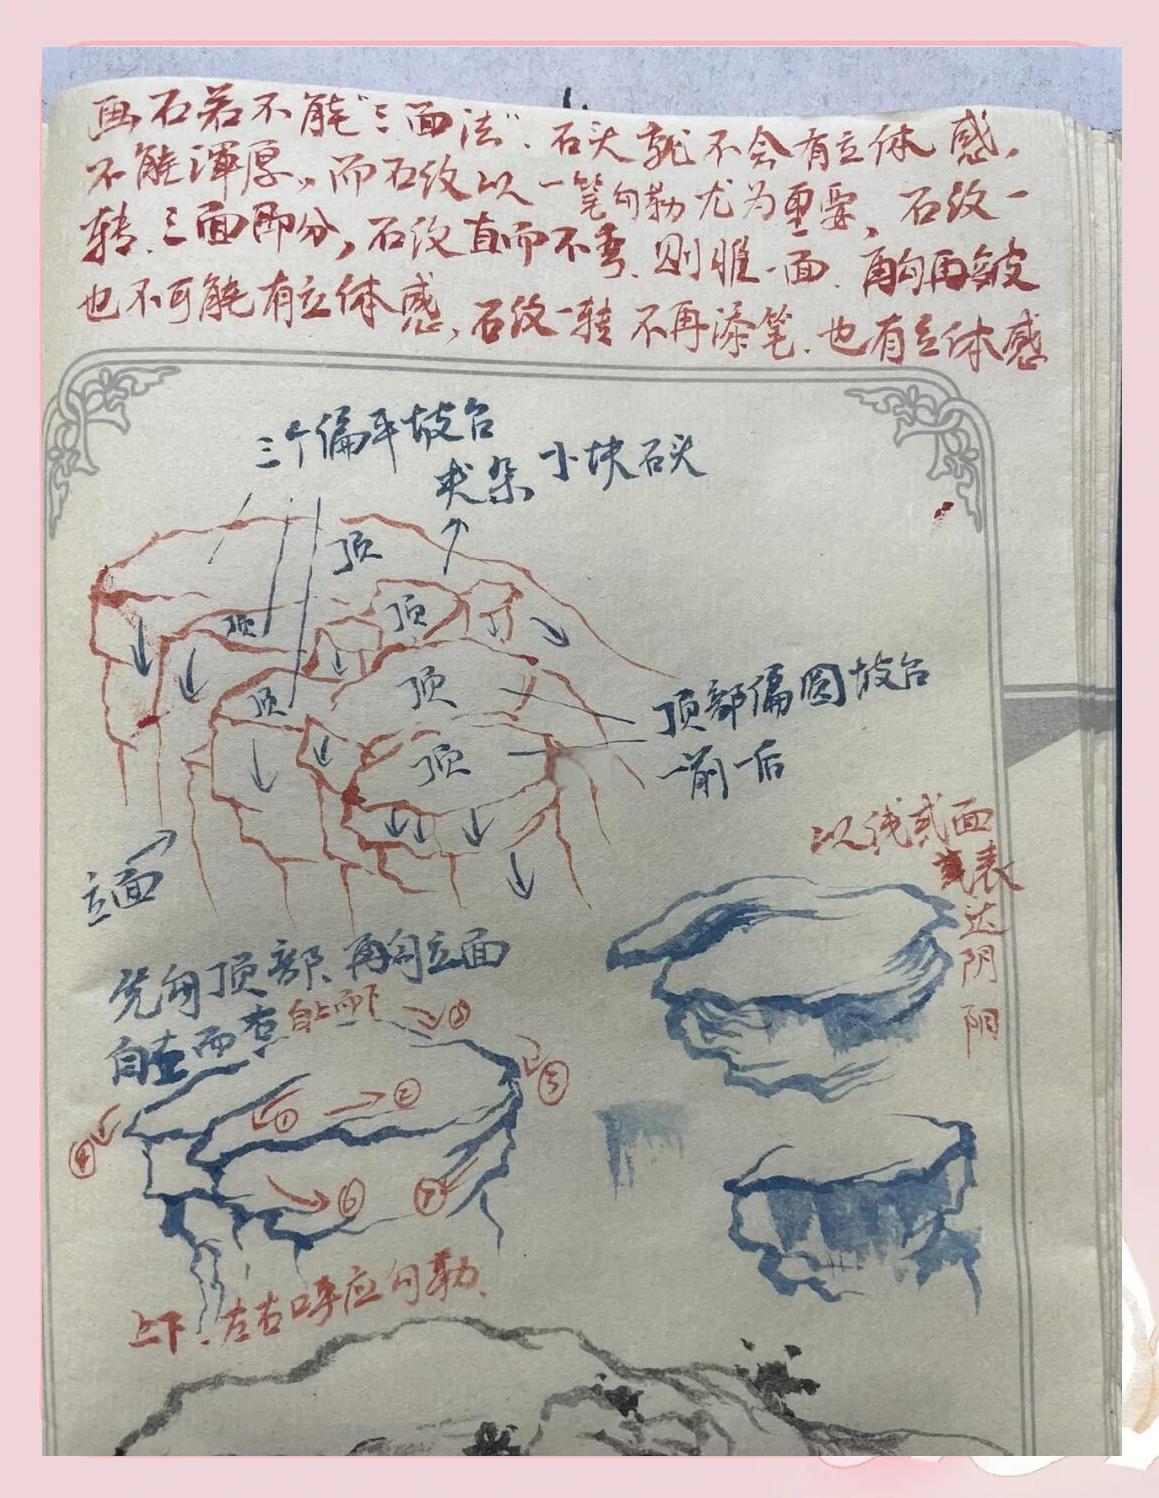 画石若不能“三面法”、石头就不会有立体感，
不能浑厚，而石纹以一笔勾勒尤为重要，石纹一
转、三面即分，石纹直而不弯、则唯一面、再勾再皴
也不可能有立体感，石纹一转不再添笔、也有立体感
三个偏平坡台
夹杂小块石头
顶
顶
顶
顶
顶
顶
顶部偏圆坡台
一前一后
立面
以线或面
表
达
阴
阳
先勾顶部、再勾立面
自左而右
自上而下
③
①
②
⑤
④
⑥
⑦
上下、左右呼应勾勒、